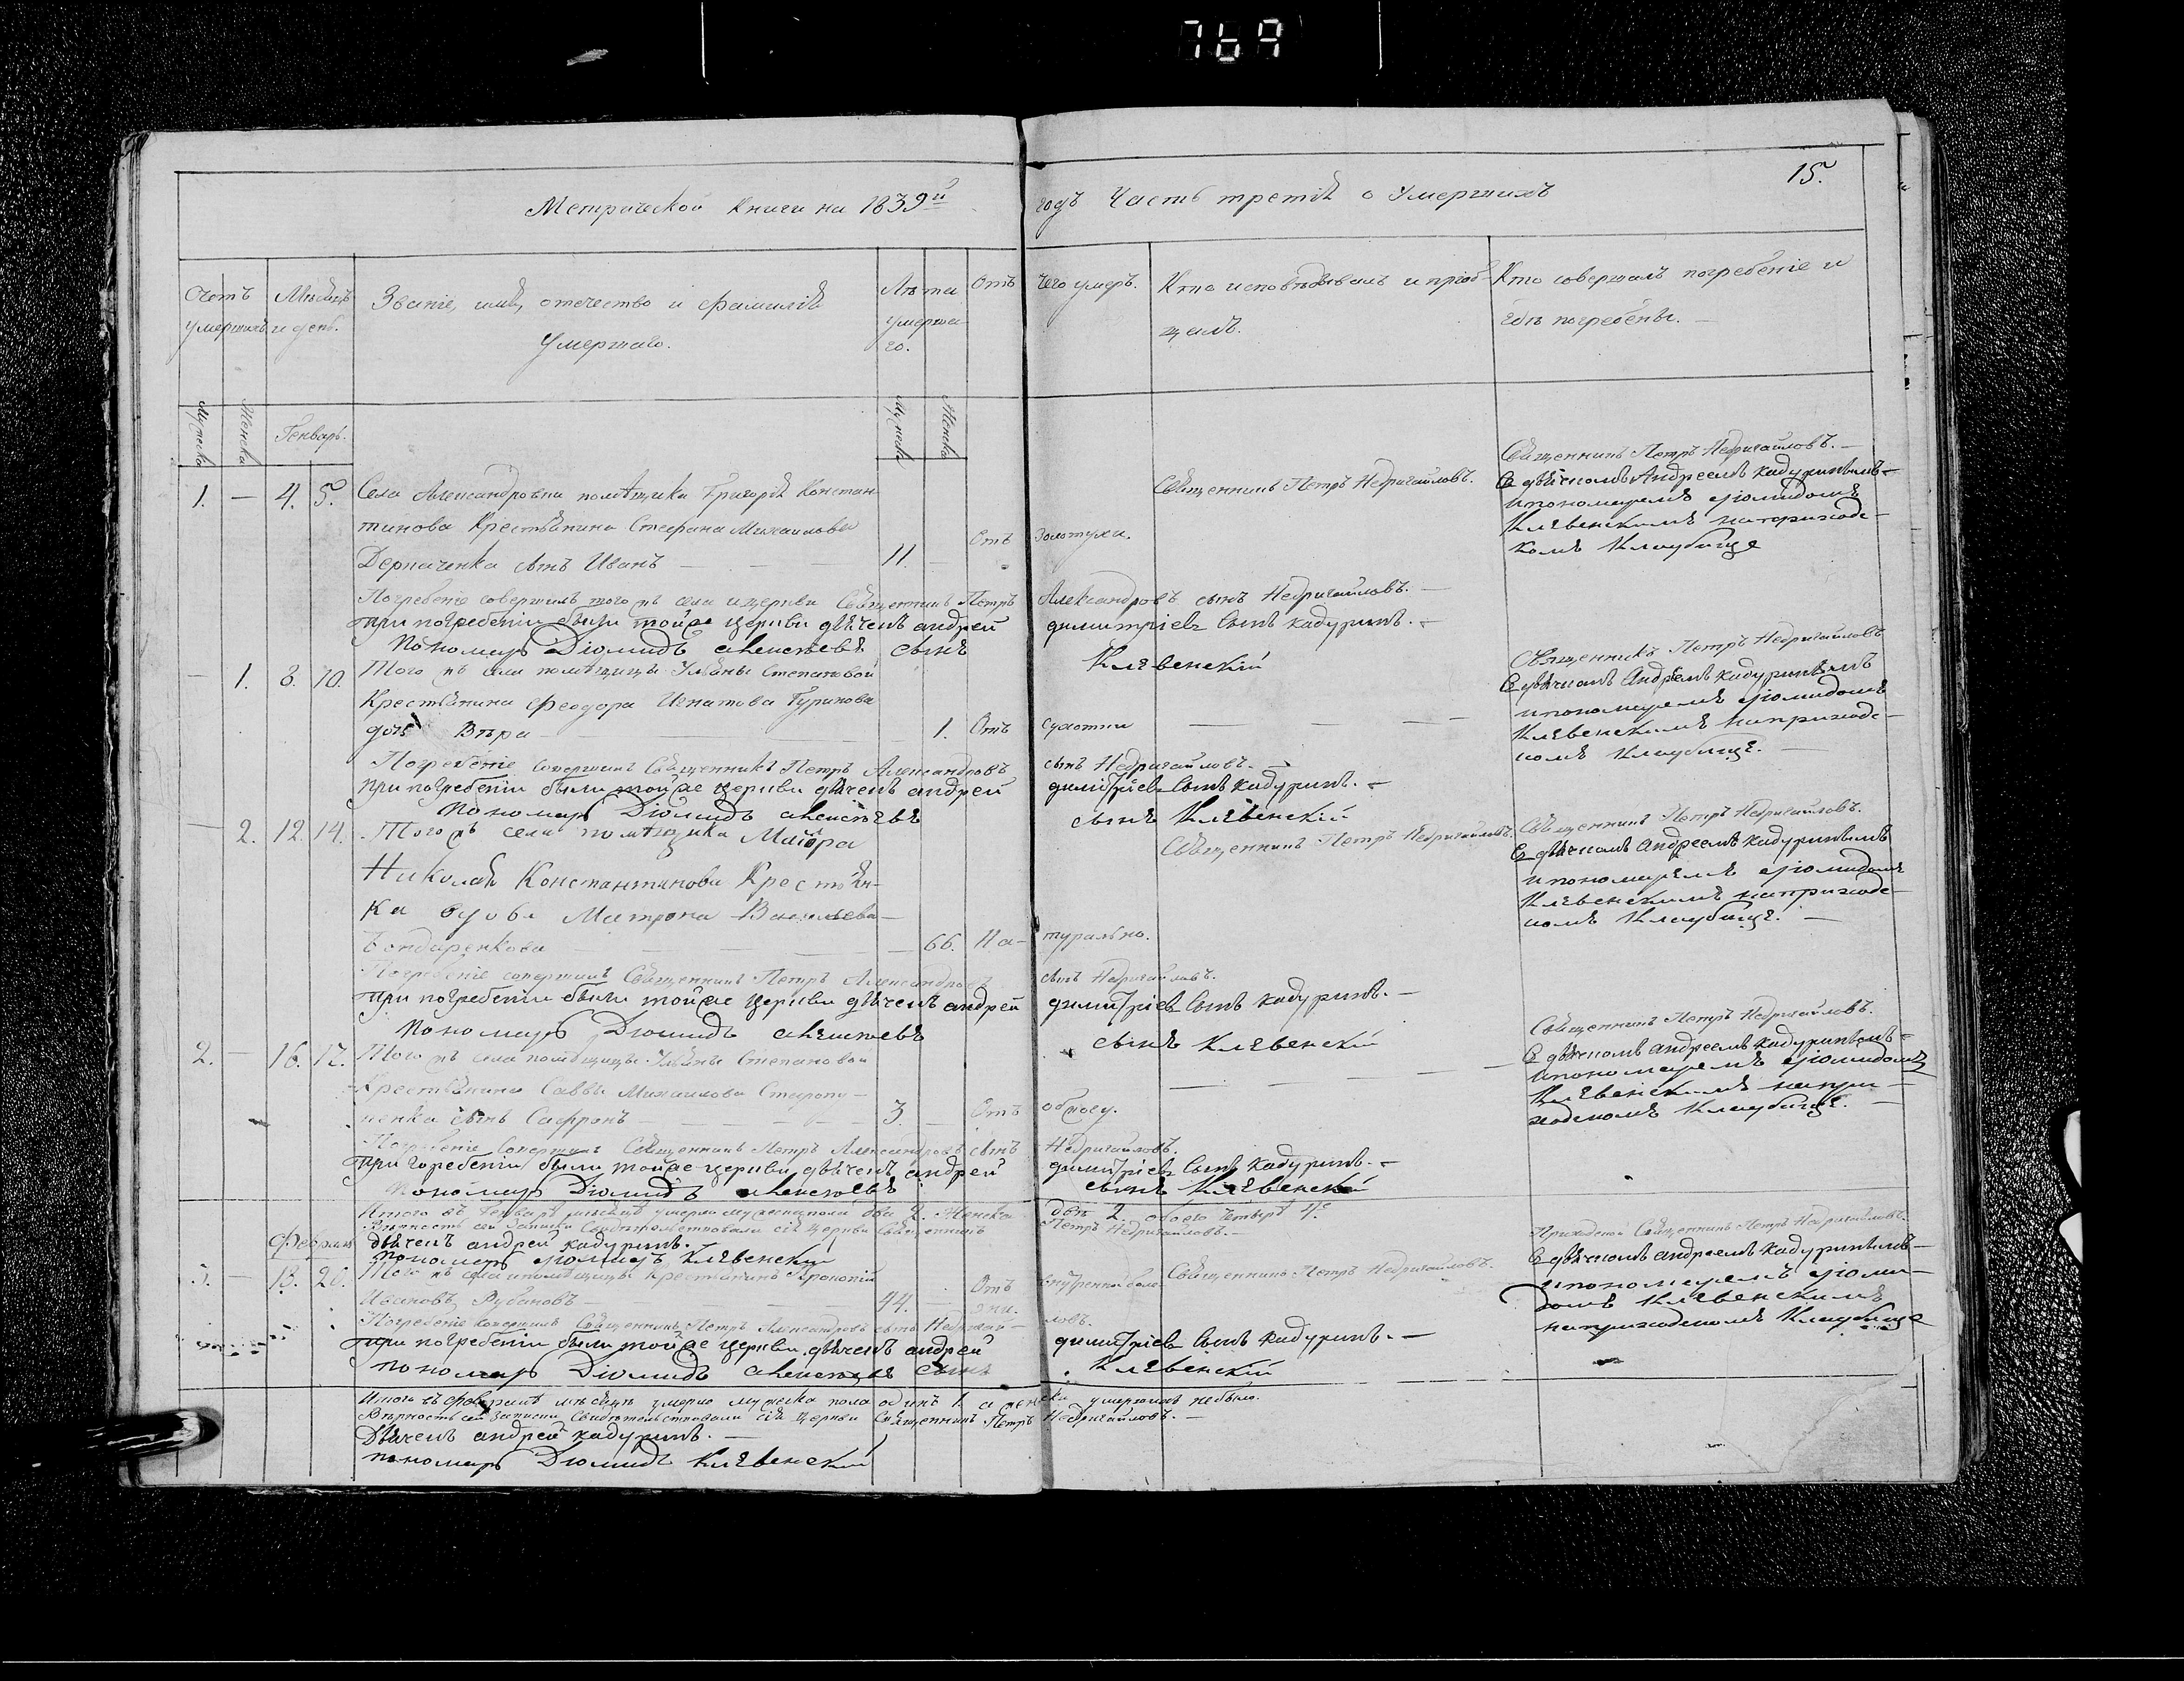 769
15.
Метрической книги на 1839й годъ Часть третія о Умершихъ
Счетъ умершихъ
Мѣсяцъ и день.
Званіе, имя, отечество и фамилія
Умершаго.
Лѣта
умерша
го.
Отъ чего умеръ.
Кто исповѣдывалъ и пріоб-
щалъ.
Кто совершалъ погребеніе и
гдѣ погребены.
Мужеска
Женска
Генварь.
Мужеска
Женска
1. — 4. 5. Села Александровки помѣщика Григорія Констан
тинова Крестьянина Стефана Михаилова
Дерпаченка сынъ Иванъ — 11. — Отъ золотухи.
Священникъ Петръ Недригайловъ.
Священникъ Петръ Недригайловъ.—
Съ дьячкомъ Андреемъ Кадуринымъ—
и пономаремъ Діомидомъ
Клевенскимъ на приходс-
комъ Кладбище
Погребеніе совершилъ того жъ села и церкви Священникъ Петръ Александровъ сынъ Недригайловъ.—
при погребеніи были тойже церкви дьячекъ андрей димитріевъ сынъ кадуринъ.—
пономарь Діомидъ алексѣевъ сынъ Клевенскій
— 1. 8. 10. Того жъ села помѣщицы Ульяны Степановой
Крестьянина Феодора Игнатова Гуринова
дочь Вѣра — 1. Отъ сухотки — — —
Священникъ Петръ Недригайловъ
Съ дьячкомъ Андреемъ кадуринымъ
и пономаремъ Діомидомъ
Клевенскимъ на приходс-
комъ Кладбище.—
Погребеніе совершилъ Священникъ Петръ Александровъ сынъ Недригайловъ.—
при погребеніи были тойже церкви дьячекъ андрей димитріевъ сынъ кадуринъ.—
пономарь Діомидъ алексѣевъ сынъ Клевенскій
— 2. 12. 14. Того жъ села помѣщика Маіора
Николая Константинова Крестьян-
ка вдова Матрона Васильева
Бондаренкова — — — 66. На-турально.
Священникъ Петръ Недригайловъ.
Священникъ Петръ Недригайловъ.
Съ дьячкомъ андреемъ кадуринымъ
и пономаремъ Діомидомъ
Клевенскимъ на приходс-
комъ Кладбище.—
Погребеніе совершилъ Священникъ Петръ Александровъ сынъ Недригайловъ.
при погребеніи были тойже церкви дьячекъ андрей димитріевъ сынъ кадуринъ.—
пономарь Діомидъ алексѣевъ сынъ Клевенскій
2. — 16. 17. Того жъ села помѣщицы Ульяны Степановой
Крестьянина Саввы Михаилова
сынъ Сафронъ — — — 3. — Отъ
Священникъ Петръ Недригайловъ.
Съ дьячкомъ андреемъ кадуринымъ—
и пономаремъ Діомидомъ
Клевенскимъ на при-
ходскомъ Кладбище.—
Погребеніе совершилъ Священникъ Петръ Александровъ сынъ Недригайловъ.
при погребеніи были тойже церкви дьячекъ андрей димитріевъ сынъ кадуринъ.—
пономарь Діомидъ алексѣевъ сынъ Клевенскій
Итого въ Генварѣ мѣсяцѣ умерло мужеска пола два 2. Женска двѣ 2. обоего четыре 4.
Вѣрность сей Записки Свидѣтельствовали сія Церкви Священникъ Петръ Недригайловъ.—
дьячекъ андрей кадуринъ.
пономарь Діомидъ Клевенскій
Февраль
3. — 18. 20. Того жъ села помѣщицы крестьянинъ Прокопій
Ивановъ Рубановъ — 44. — Отъ внутренной боле-зни.
Священникъ Петръ Недригайловъ.
Приходской Священникъ Петръ Недригайловъ.
Съ дьячкомъ андреемъ кадуринымъ—
и пономаремъ Діоми-
домъ Клевенскимъ
на приходскомъ Кладбище
Погребеніе совершилъ Священникъ Петръ Александровъ сынъ Недригай-ловъ.
при погребеніи были тойже церкви дьячекъ андрей димитріевъ сынъ кадуринъ.—
пономарь Діомидъ алексѣевъ сынъ Клевенскій
Итого въ Февралѣ мѣсяцѣ умерло мужеска пола одинъ 1. а женска умершихъ небыло.
Вѣрность сей Записки Свидѣтельствовали сія Церкви Священникъ Петръ Недригайловъ.—
Дьячекъ андрей кадуринъ.—
пономарь Діомидъ Клевенскій